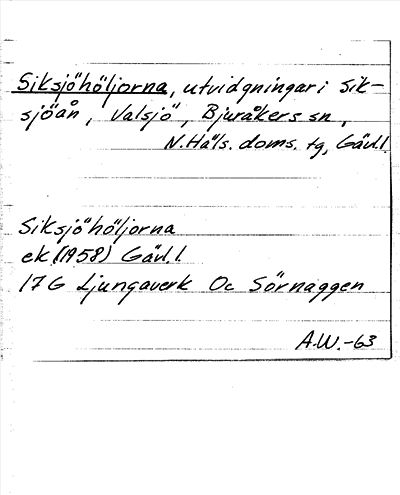 Siksjöhöljorna, utvidgningar i Sik-
sjöån, Valsjö, Bjuråkers sn,
N. Häls. doms. tg, Gävl. l.
Siksjöhöljorna
ek. (1958) Gävl. l.
17 G Ljungaverk Oc Sörnaggen
A.W.-63